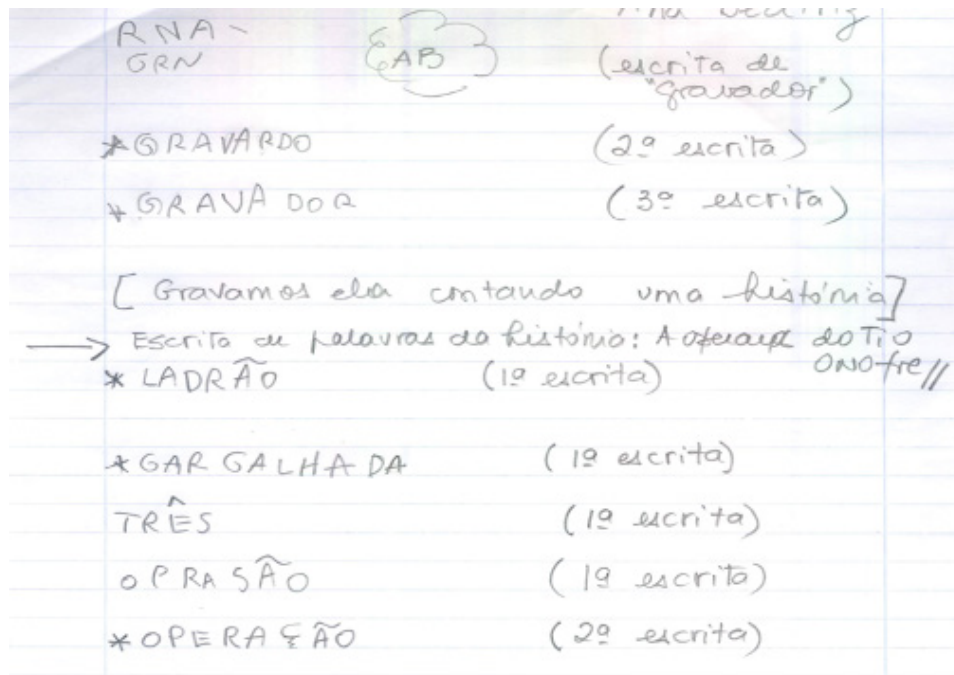 RNA -
GRN EAB (escrita de
"gravador")
*GRAVARDO (2ª escrita)
*GRAVADOR (3ª escrita)
[Gravamos ela contando uma história]
→ Escrita de palavras da história: A do Tio
ONOfre//
* LADRÃO (1ª escrita)
*GARGALHADA (1ª escrita)
TRÊS (1ª escrita)
OPRASÃO (1ª escrita)
*OPERAÇÃO (2ª escrita)